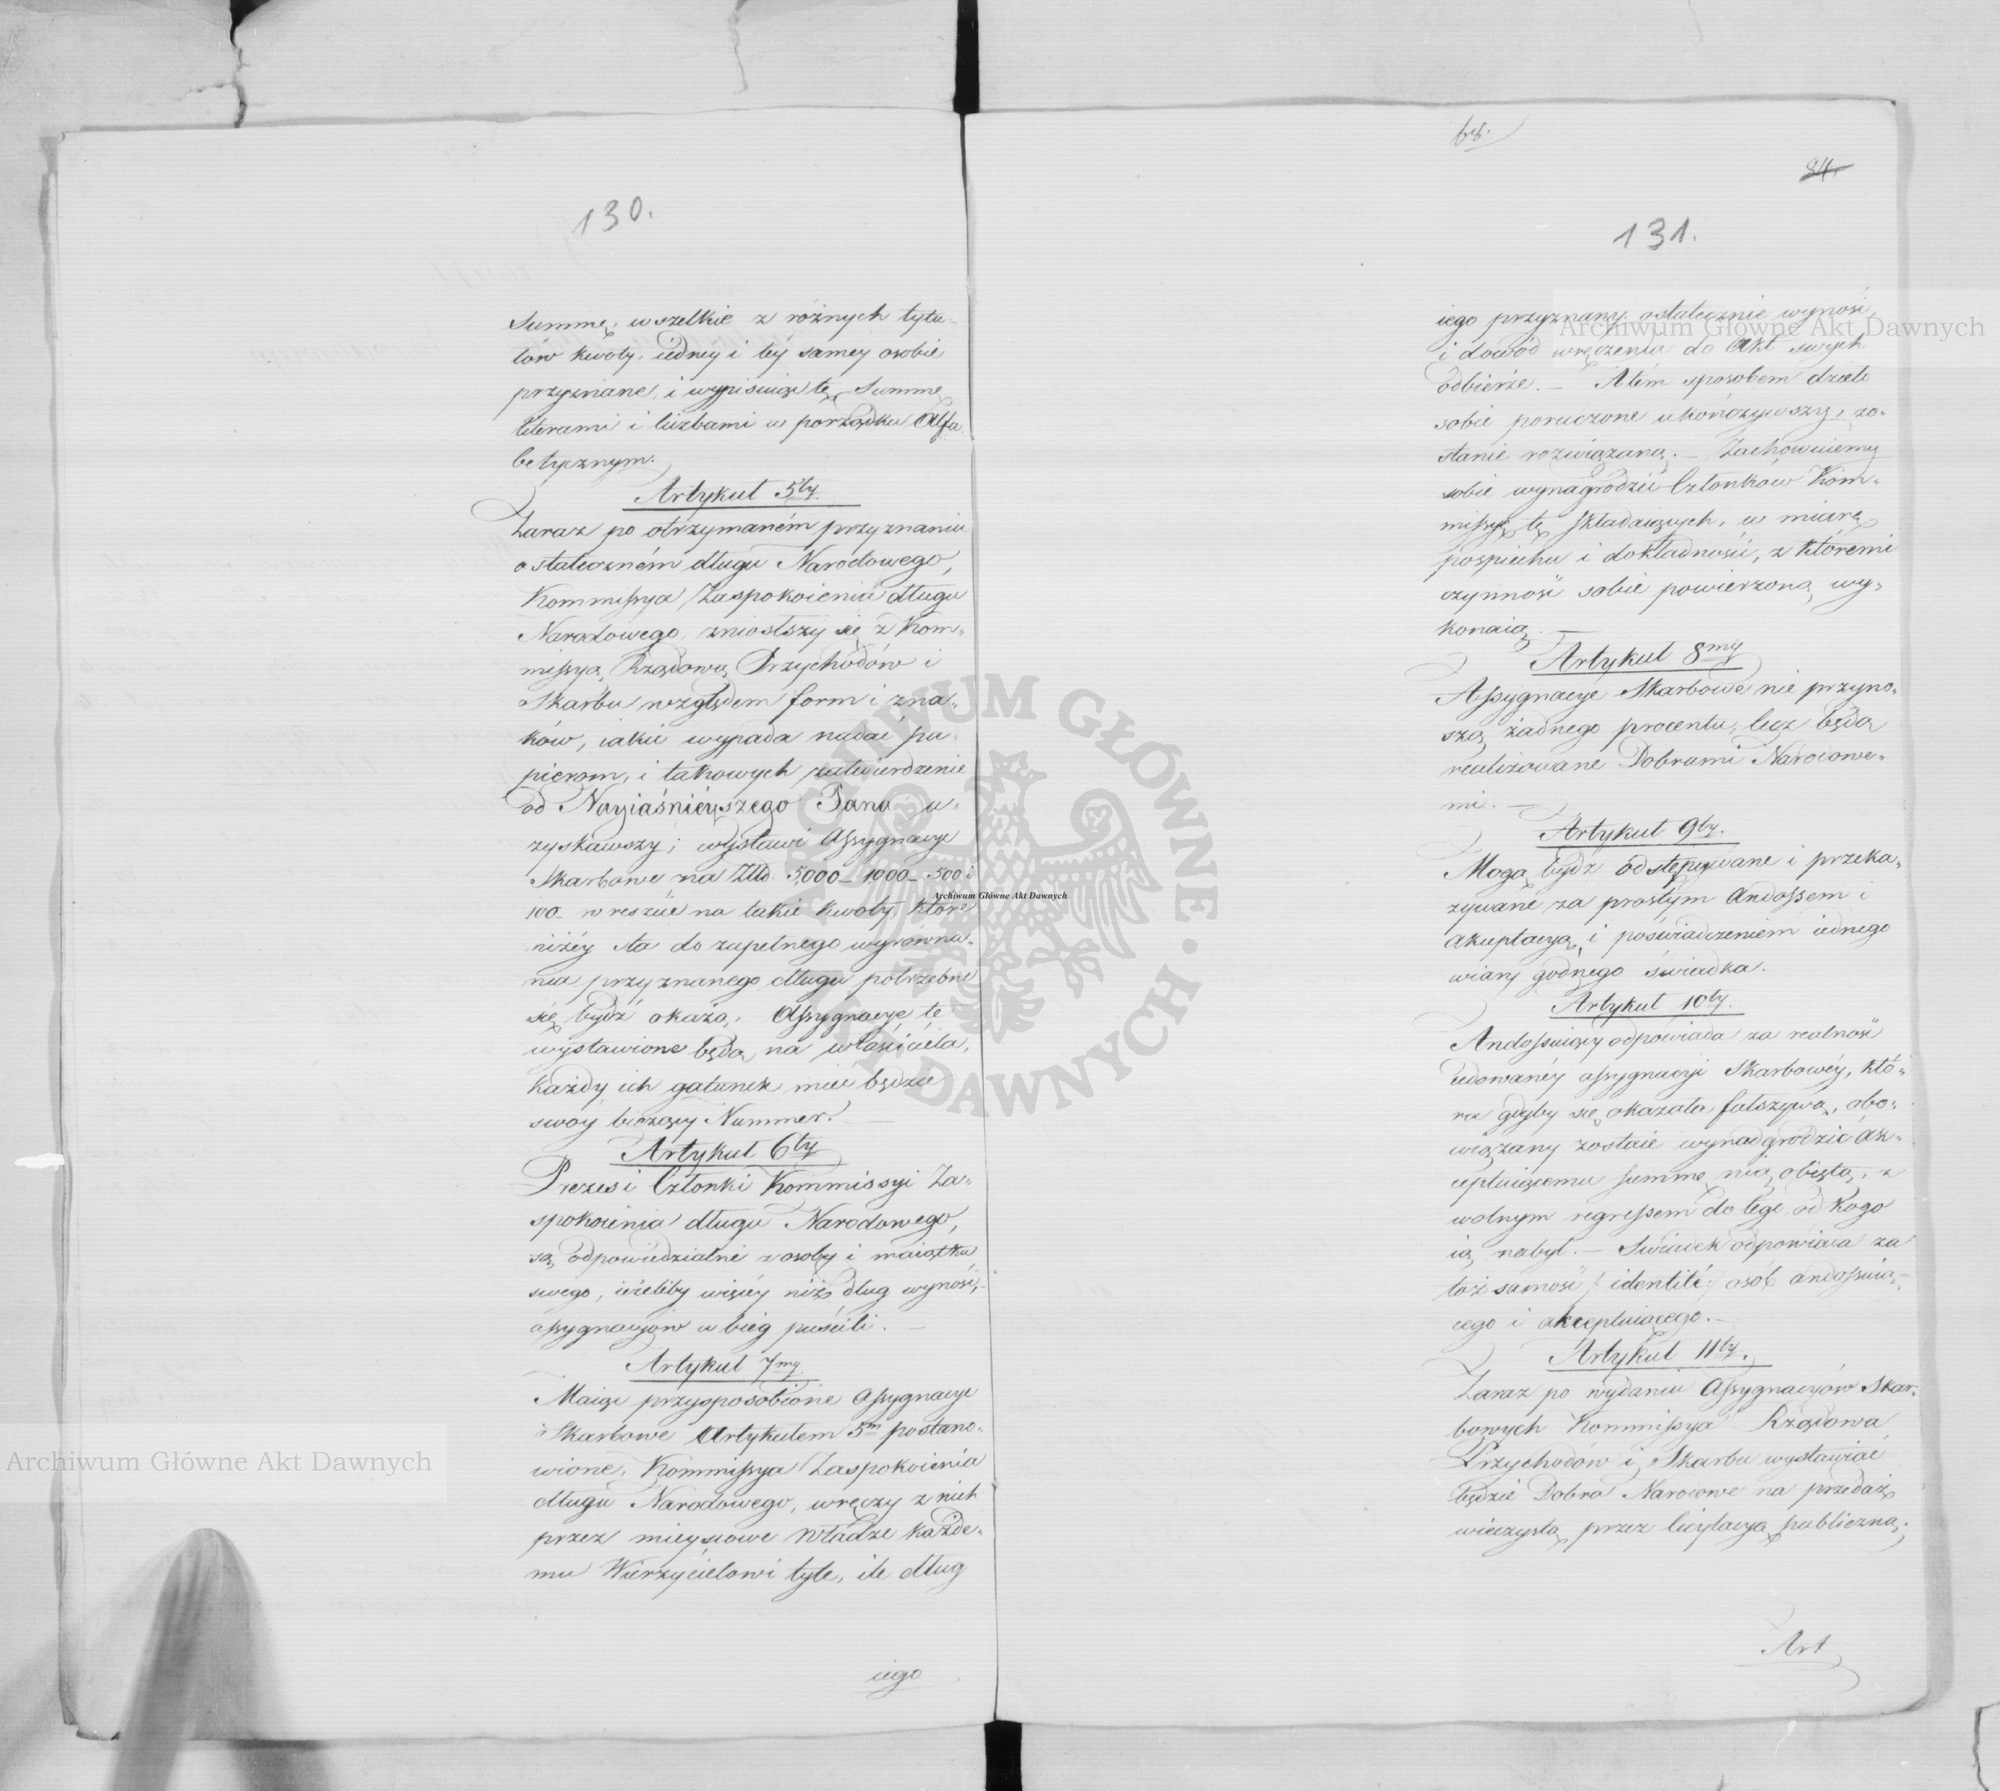 130.
Summę, wszelkie z różnych tytu-
łów kwoty, iedney i téy samey osobie
przyznane, i wypisuiąc tę Summę
literami i liczbami w porządku Alfa-
betycznym.
Artykuł 5ty.
Zaraz po otrzymaném przyznaniu
ostateczném długu Narodowego,
Kommissya Zaspokoienia długu
Narodowego zniosłszy się z Kom-
missyą Rządową Przychodów i
Skarbu względem form i zna-
ków, iakie wypada nadać pa-
pierom, i takowych zatwierdzenie
od Nayiaśniéyszego Pana u-
zyskawszy; wystawi Assygnacye
Skarbowe na Złłd. 5,000 – 1,000 – 500 i
100 – w reszcie na takie kwoty, które
niżéy sta do zupełnego wyrówna-
nia przyznanego długu potrzebne
się bydź okażą. Assygnacye te
wystawione będą na właściciela,
każdy ich gatunek mieć będzie
swóy bieżący Nummer. —
Artykuł 6ty
Prezes i Członki Kommissyi Za-
spokoienia długu Narodowego,
są odpowiedzialni z osoby i maiątku
swego, ieżeliby więcéy niż dług wynosi,
assygnacyiów w bieg puścili. —
Artykuł 7my.
Maiąc przysposobione Assygnacye
Skarbowe Artykułem 5m postano-
wione, Kommissya Zaspokoienia
długu Narodowego, wręczy z nich
przez mieyscowe Władze każde-
mu Wierzycielowi tyle, ile dług
iego
84.
131.
iego przyznany ostatecznie wynosi,
i dowód wręczenia do Akt swych
odbierze. — A tém sposobem dzieło
sobie poruczone ukończywszy, zo-
stanie rozwiązaną. — Zachowuiemy
sobie wynagrodzić Członków Kom-
missyę tę składaiących, w miarę
pospiechu i dokładności, z któremi
czynność sobie powierzoną wy-
konaią. —
Artykuł 8my
Assygnacye Skarbowe nie przyno-
szą żadnego procentu, lecz będą
realizowane Dobrami Narodowe-
mi. —
Artykuł 9ty.
Mogą bydź odstępywane i przeka-
zywane za prostym Andossem i
akceptacyą, i poświadczeniem iednego
wiary godnego świadka.
Artykuł 10ty.
Andossuiący odpowiada za realność
cedowanéy assygnacyi Skarbowéy, któ-
ra gdyby się okazała fałszywą, obo-
wiązany zostaie wynadgrodzić ak-
ceptuiącemu summę nią obiętą, z
wolnym regressem do tego od kogo
ią nabył. — Świadek odpowiada za
tożsamość /: identité :/ osób andossuią-
cego i akceptuiącego. —
Artykuł 11ty.
Zaraz po wydaniu Assygnacyiów Skar-
bowych Kommissya Rządowa
Przychodów i Skarbu wystawiać
będzie Dobra Narodowe na przedaż
wieczystą przez licytacyą publiczną;
Art
Archiwum Główne Akt Dawnych
Archiwum Główne Akt Dawnych
Archiwum Główne Akt Dawnych
ARCHIWUM GŁÓWNE AKT DAWNYCH